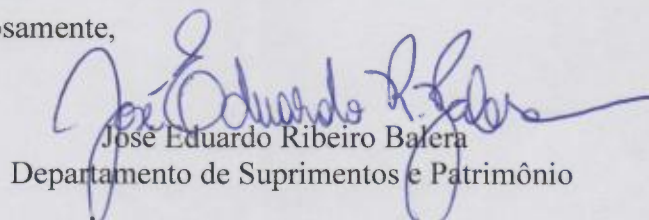 osamente,
José Eduardo R. Balera
José Eduardo Ribeiro Balera
Departamento de Suprimentos e Patrimônio